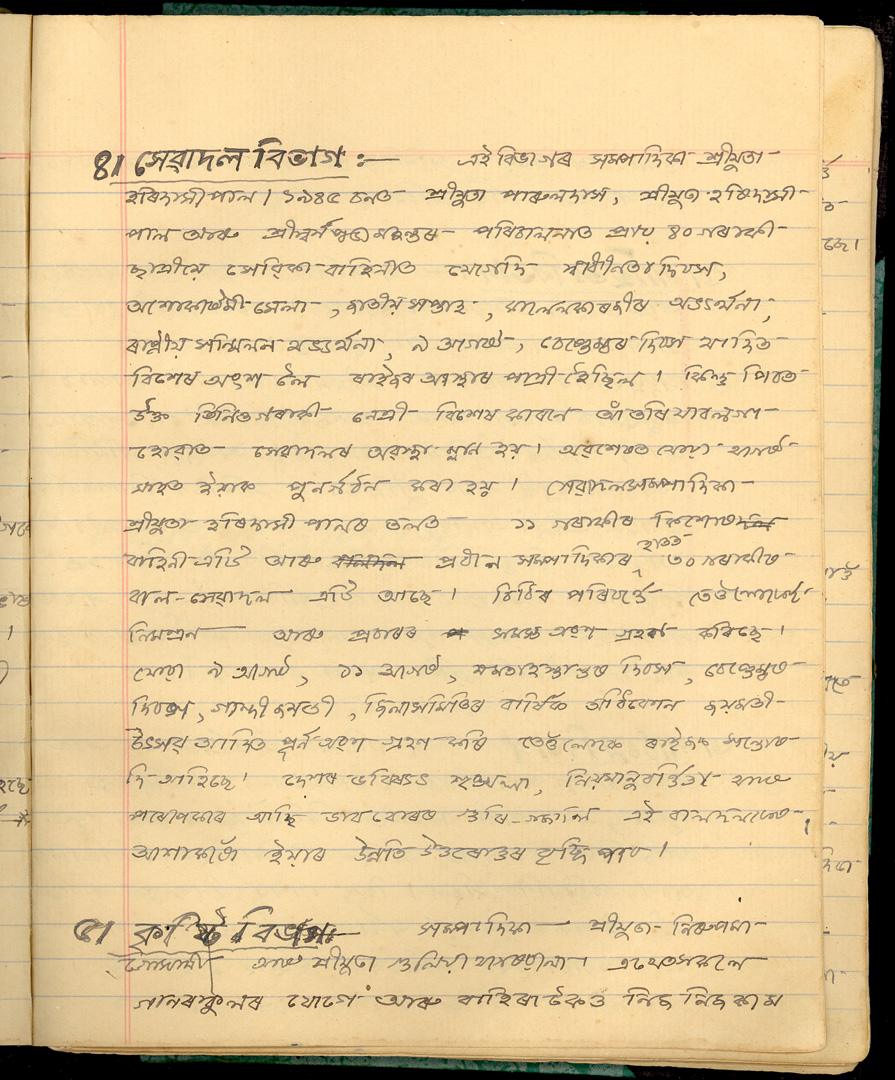 ৪। সেৱাদল বিভাগ :— এই বিভাগৰ সম্পাদিকা শ্ৰীযুতা
হৰিদাসী পাল। ১৯৪৫ চনত শ্ৰীযুতা পাৰুল দাস, শ্ৰীযুতা হৰিদাসী
পাল আৰু শ্ৰীস্বৰ্ণ মহন্তৰ পৰিচালনাত প্ৰায় ৪০ গৰাকী
ছাত্ৰীয়ে সেৱিকা বাহিনীত যোগদি স্বাধীনতা দিবস,
অশোকাষ্টমী মেলা, জাতীয় সপ্তাহ, অভ্যৰ্থনা,
ৰাষ্ট্ৰীয় সন্মিলন অভ্যৰ্থনা, ৯ আগষ্ট, চেপ্তেম্বৰ দিবস আদিত
বিশেষ অংশ লৈ ৰাইজৰ পাত্ৰী হৈছিল। কিন্তু পিচত
উক্ত তিনিওগৰাকী নেত্ৰী বিশেষ কাৰনে আঁতৰি যাবলগা
হোৱাত সেৱাদলৰ অৱস্থা ম্লান হয়। অৱশেষত যোৱা আগষ্ট
মাহত ইয়াক পুনৰ্গঠন কৰা হয়। সেৱাদল সম্পাদিকা
শ্ৰীযুতা হৰিদাসী পালৰ তলত ১১ গৰাকীৰ কিশোৰ
বাহিনী এটি আৰু প্ৰবীন সম্পাদিকাৰ হাতত ৩০ গৰাকীত
বাল-সেৱাদল এটি আছে। চিঠিৰ পৰিবৰ্ত্তে তেওঁলোকে
নিমন্ত্ৰণ আৰু প্ৰচাৰৰ সমস্ত অংশ গ্ৰহণ কৰিছে।
যোৱা ৯ আগষ্ট, ১১ আগষ্ট, দিবস, চেপ্তেম্বৰ
দিবস, গান্ধী জয়ন্তী, জিলা সমিতিৰ বাৰ্ষিক অধিবেশন জয়মতী
উৎসৱ আদিত পূৰ্ন অংশ গ্ৰহণ কৰি তেওঁলোকে ৰাইজক সন্তোষ
দি আহিছে। দেশৰ ভবিষ্যৎ শৃঙ্খলা, নিয়মানুবৰ্ত্তিতা আৰু
পৰোপকাৰ আদি ভাব বোৰৰ গুৰি এই বালদলতে।
আশাকৰোঁ ইয়াৰ উন্নতি উত্তৰোত্তৰ বৃদ্ধি পাব।
৫। কৃষ্টি বিভাগ:— সম্পাদিকা শ্ৰীযুতা নিৰুপমা
গোস্বামী আৰু শ্ৰীযুতা এওঁলোক সকলে
গানৰস্কুলৰ যোগে আৰু বাহিৰা টকাও নিজ নিজ কাম